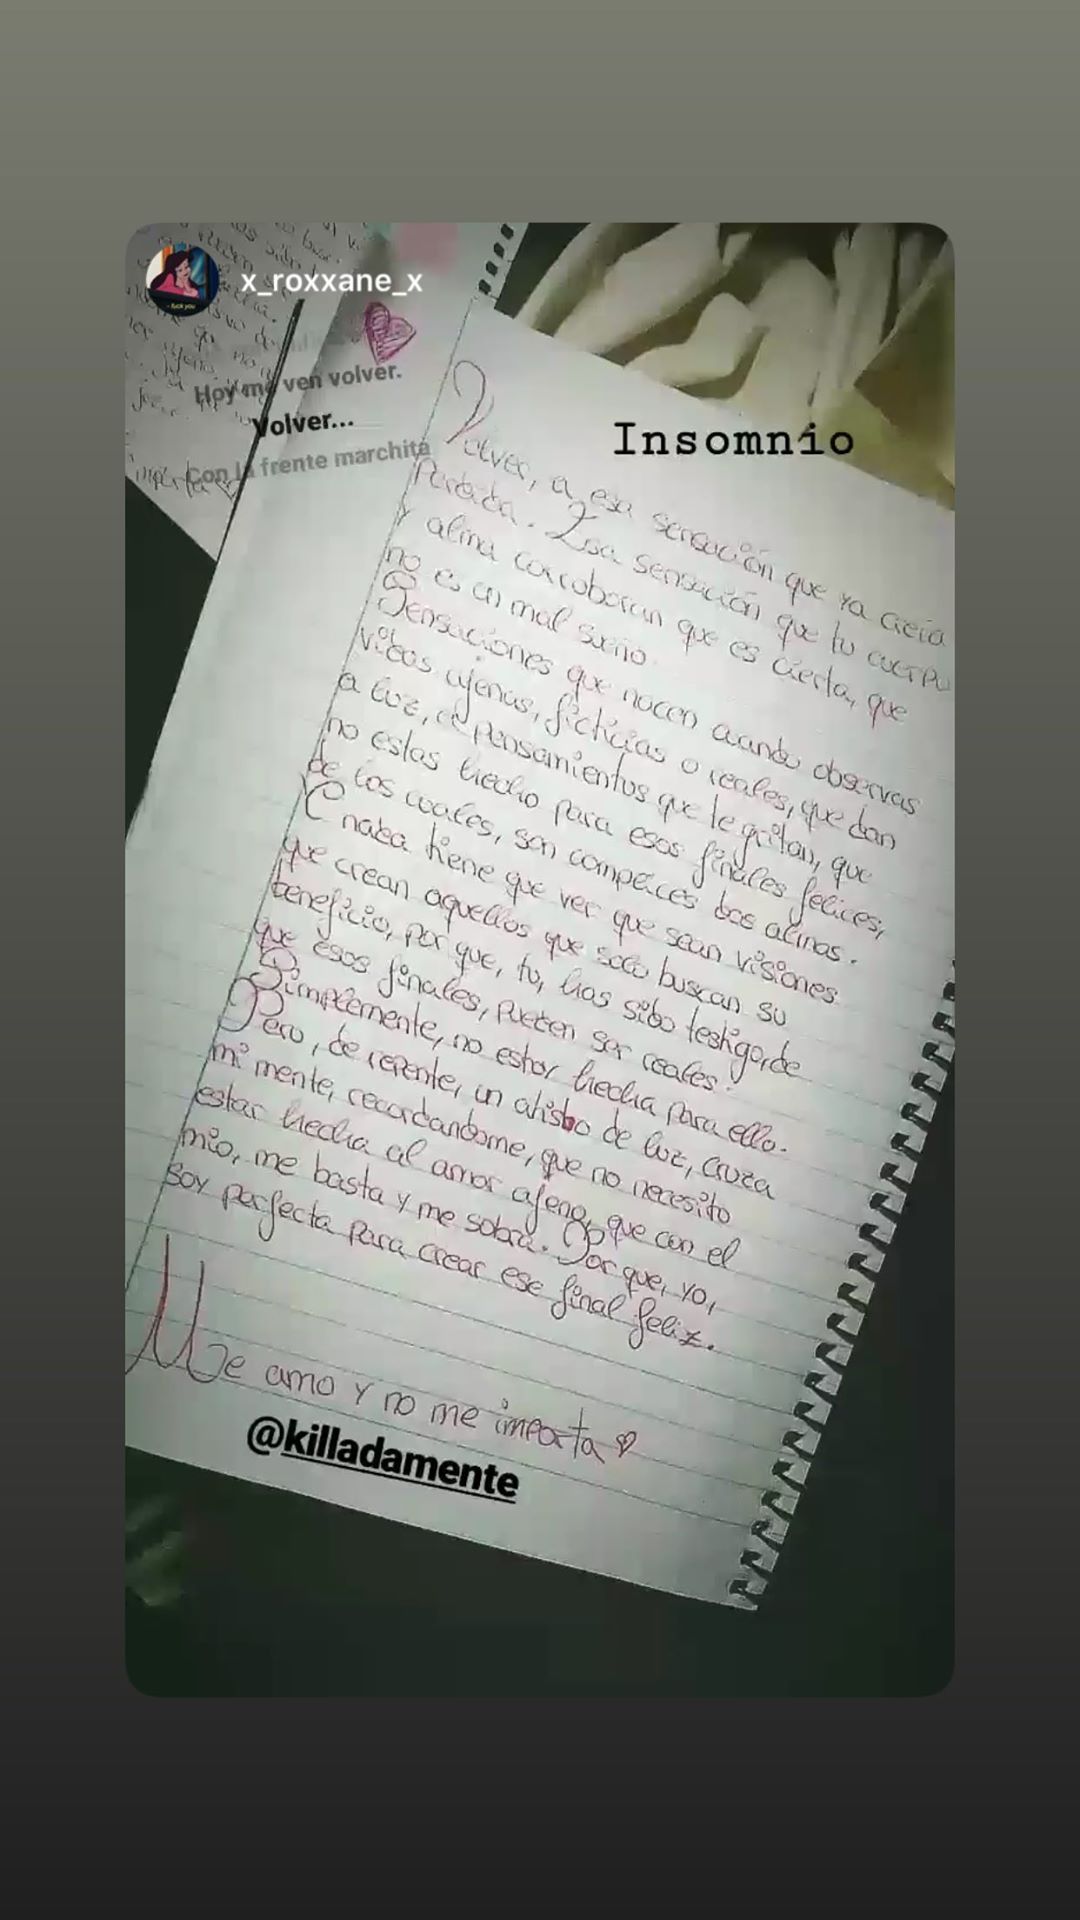 x_roxxane_x
- fuck you
Hoy me ven volver.
Volver...
Con la frente marchita
Insomnio
Volver, a esa sensación que ya creía
Perdida. Esa sensación que tu cuerpo
y alma corroboran que es cierta, que
no es un mal sueño.
Sensaciones que nacen cuando observas
vidas ajenas, ficticias o reales, que dan
a luz, a pensamientos que te gritan, que
no estas hecho para esos finales felices,
de los cuales, son complices dos almas.
Y nada tiene que ver que sean visiones
que crean aquellos que solo buscan su
beneficio, por que, tu, has sido testigo, de
que esos finales, pueden ser reales.
Simplemente, no estar hecha para ello.
Pero, de repente, un atisbo de luz, cruza
mi mente, recordandome, que no necesito
estar hecha al amor ajeno, que con el
mio, me basta y me sobra. Por que, yo,
soy perfecta para crear ese final feliz.
Me amo y no me importa
@killadamente